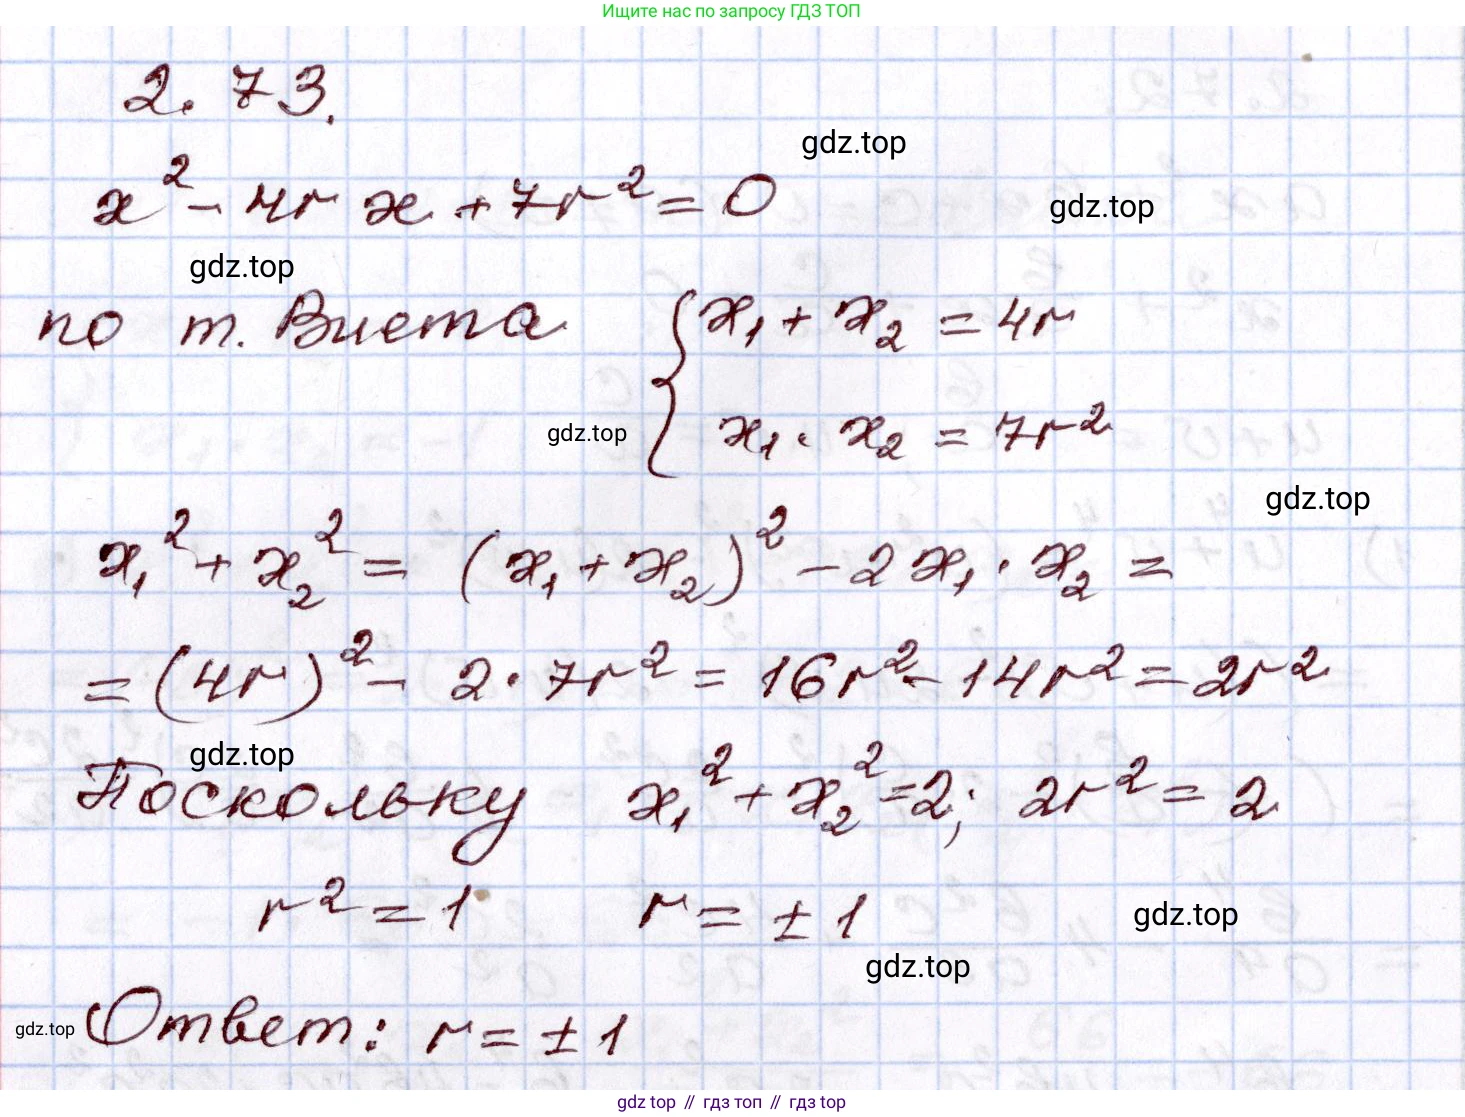 Ищите нас по запросу ГДЗ ТОП
2.73.
gdz.top
x² - 4r x + 7r² = 0
gdz.top
gdz.top
по т. Виета { x₁ + x₂ = 4r
gdz.top
x₁ · x₂ = 7r²
gdz.top
x₁² + x₂² = (x₁ + x₂)² - 2x₁ · x₂ =
= (4r)² - 2 · 7r² = 16r² - 14r² = 2r²
gdz.top
Поскольку x₁² + x₂² = 2; 2r² = 2
r² = 1 r = ± 1
gdz.top
gdz.top
gdz.top
Ответ: r = ± 1
gdz top // гдз топ // гдз top